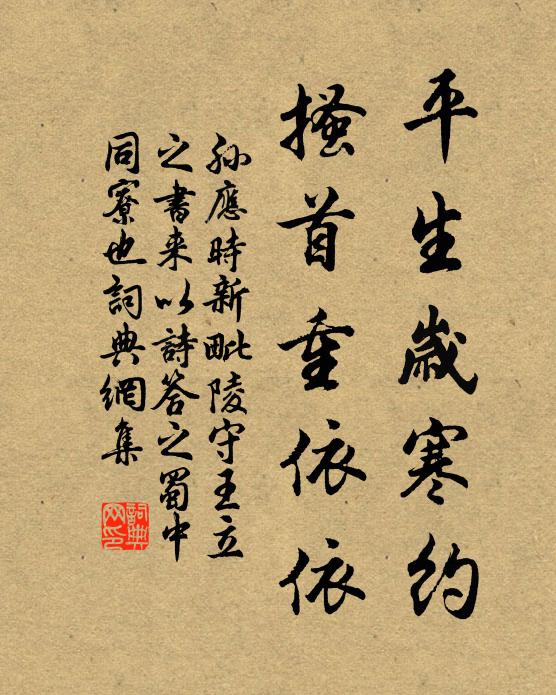 平生歲寒約
搔首重依依
孫應時新毗陵守王立
之書來以詩答之蜀中
同寮也詞典網集
詞典网印